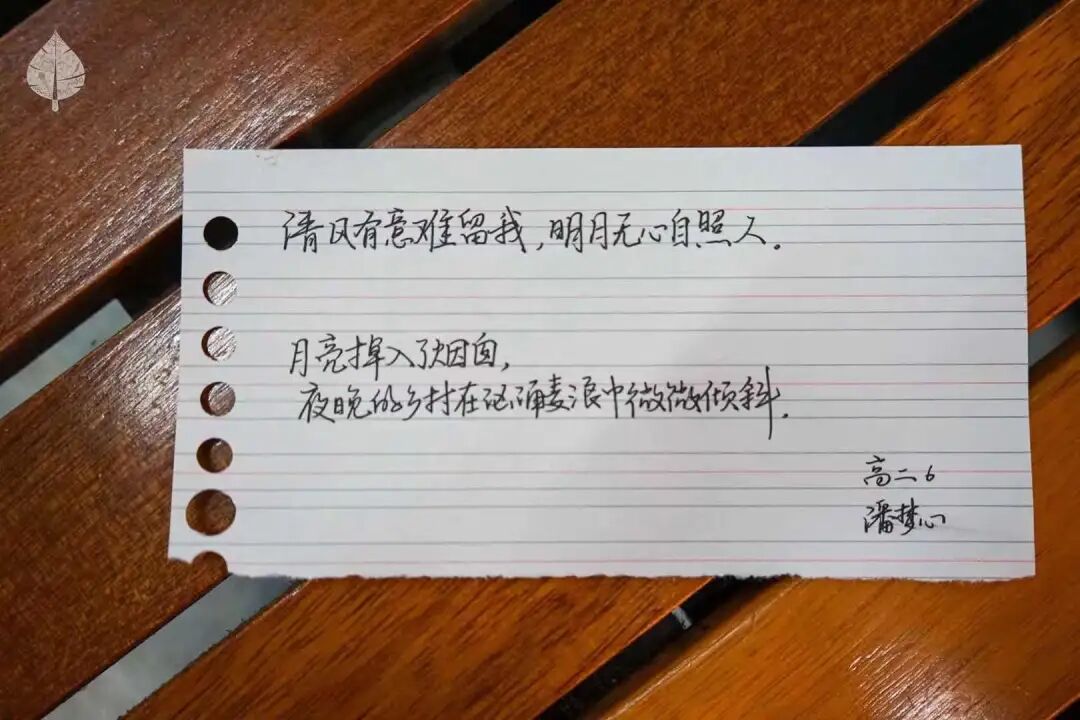 清风有意难留我，明月无心自照人.
月亮掉入了烟囱，
夜晚的乡村在汹涌麦浪中微微倾斜.
高二6
潘梦心